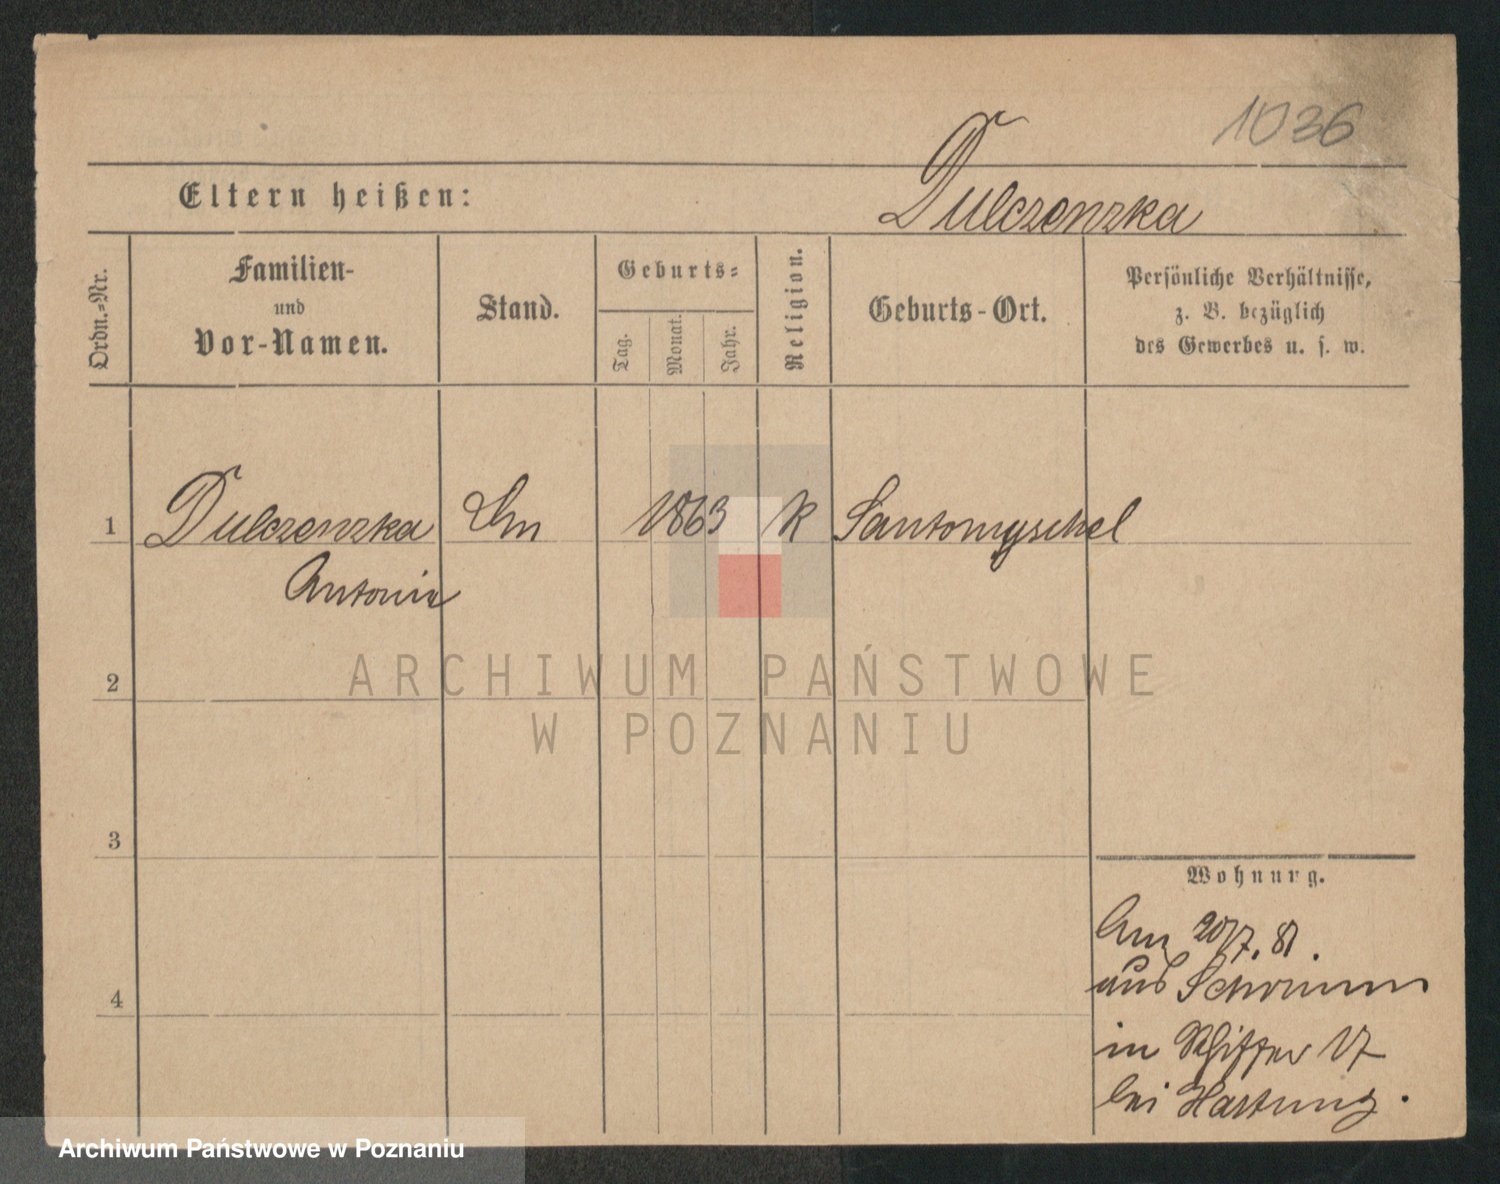 1036
Eltern heißen:
Dulczenzka
Ordn.-Nr.
Familien-
und
Vor-Namen.
Stand.
Geburts-
Tag.
Monat.
Jahr.
Religion.
Geburts-Ort.
Persönliche Verhältnisse,
z. B. bezüglich
des Gewerbes u. s. w.
1 Dulczenzka 1863 k Santomyschel
Antonie
2
3
4
Wohnung.
Am 20/7. 81.
aus Schrimm
in Schiffer 17
bei Hartung.
ARCHIWUM PAŃSTWOWE
W POZNANIU
Archiwum Państwowe w Poznaniu